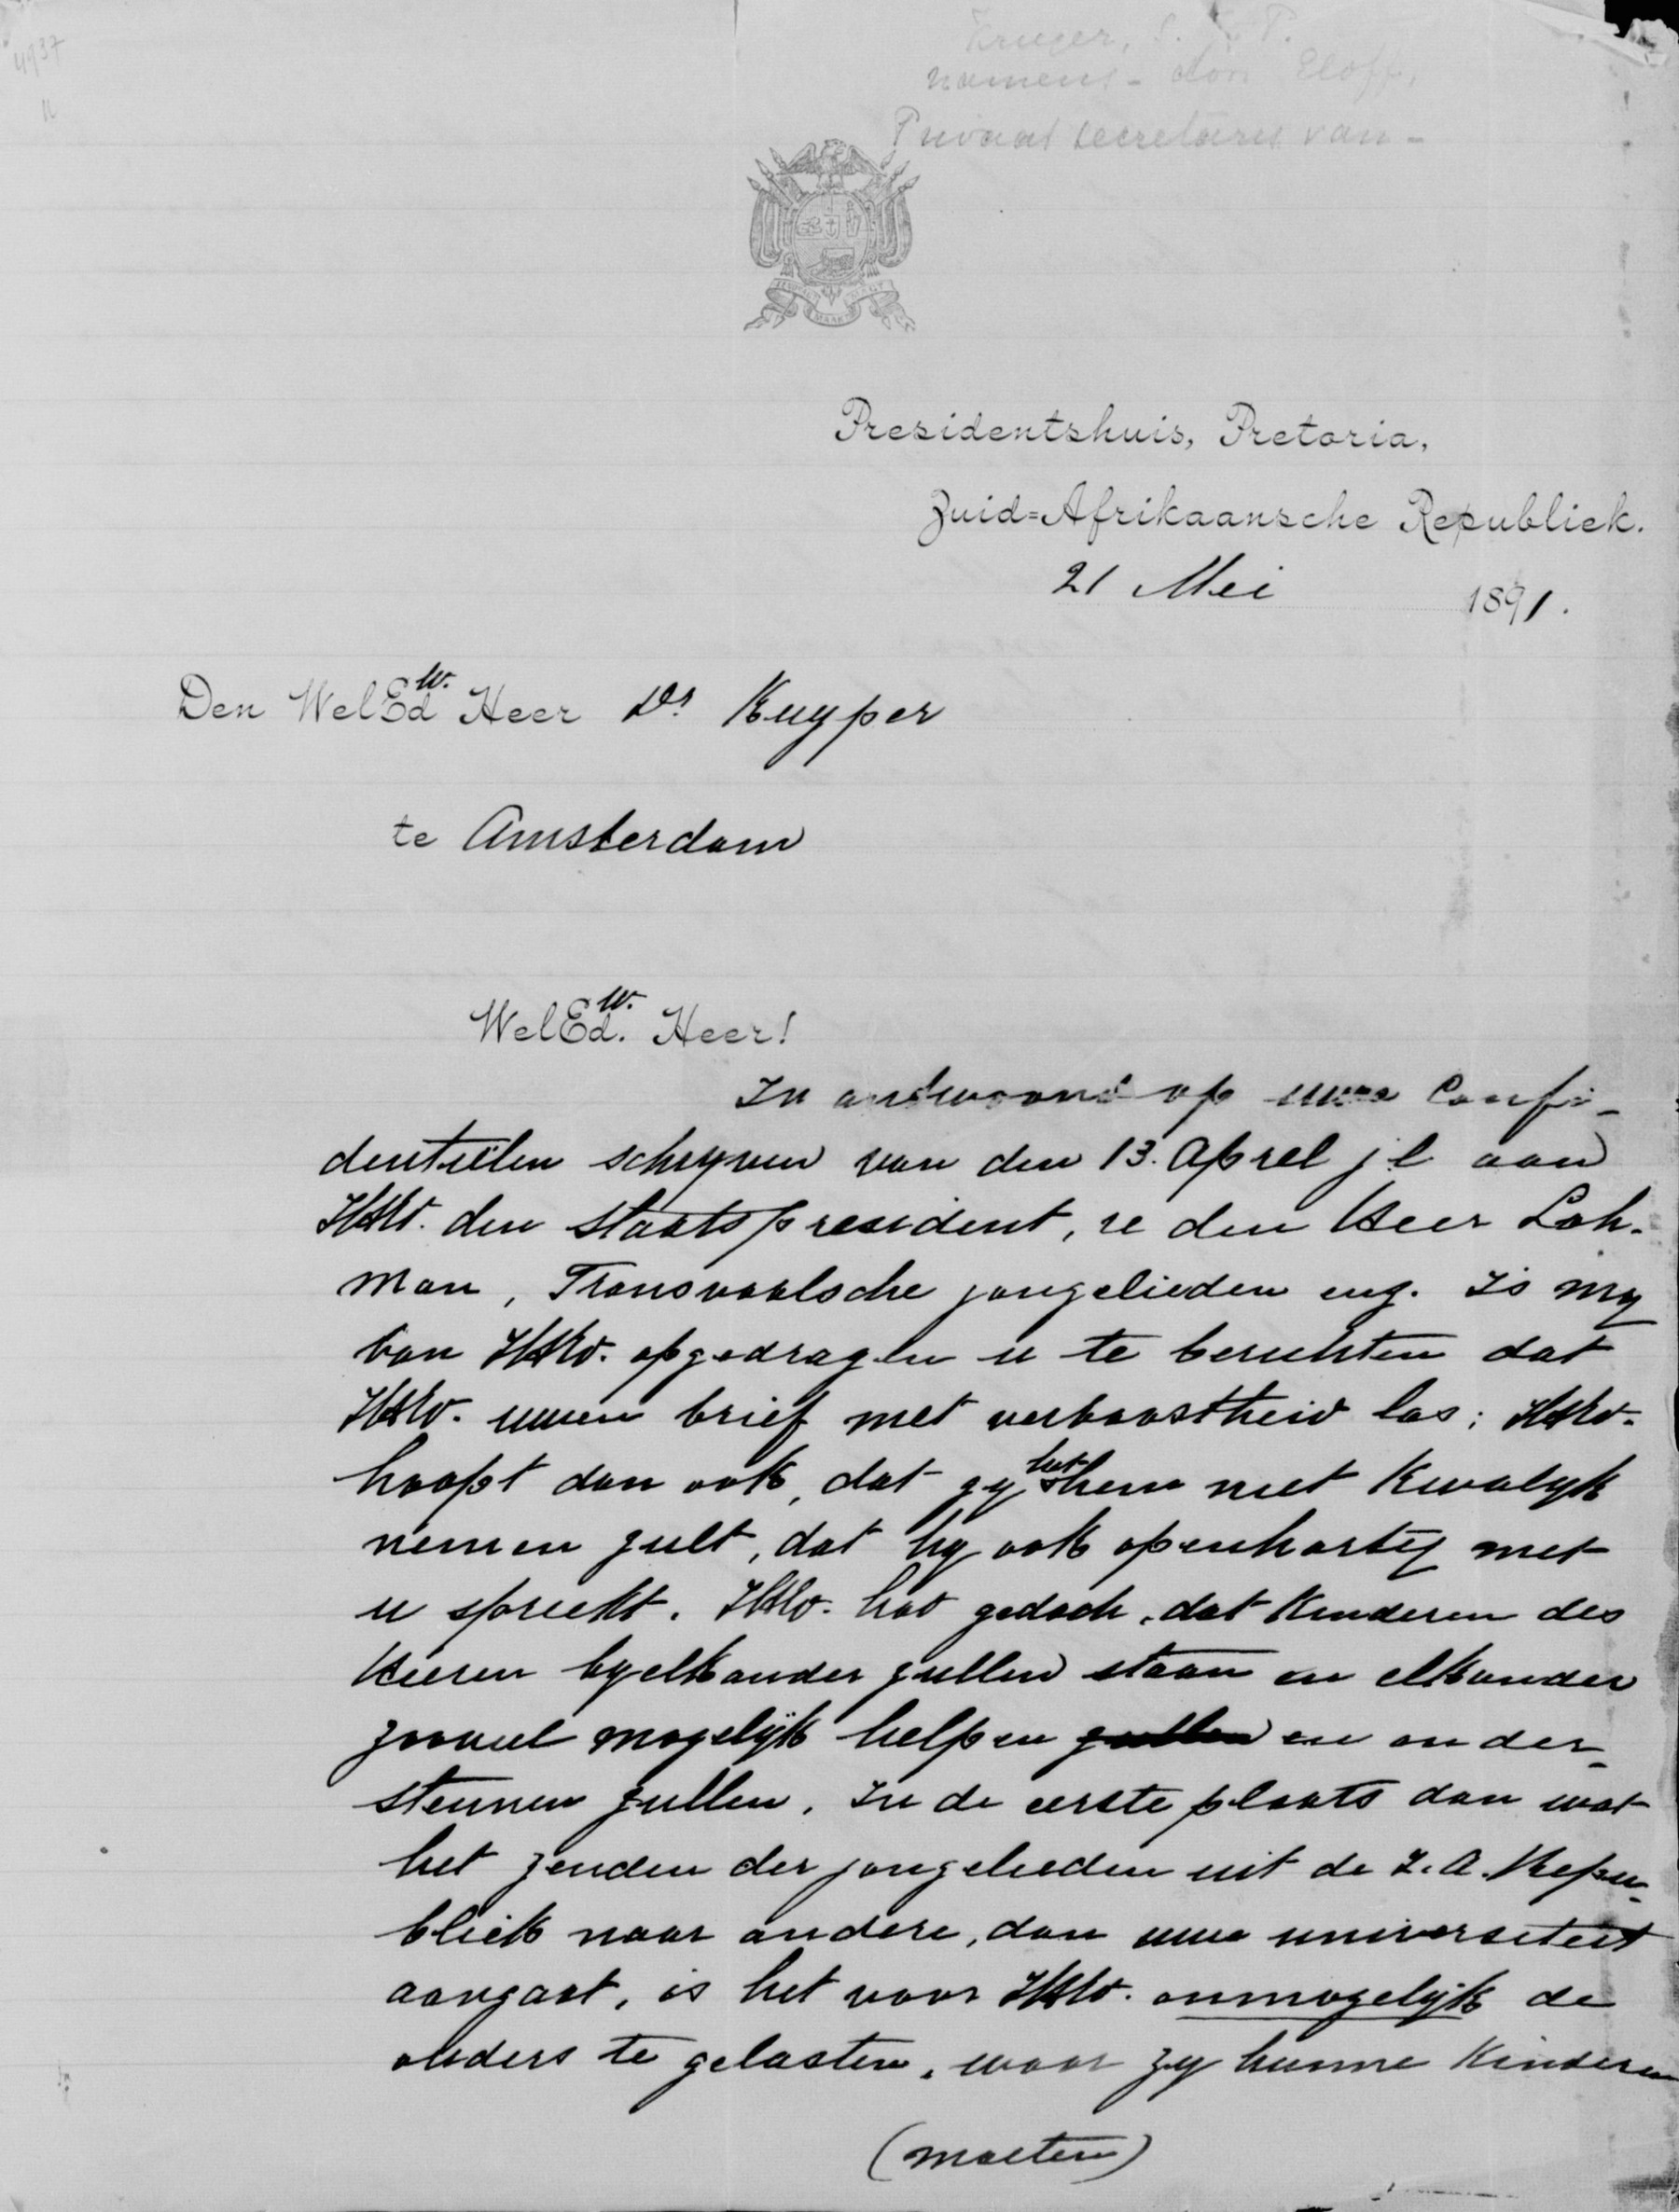 4937
Kruger, S. J. P.
namens - don Eloff,
Privaat secretaris van -
EENDRAGT MAAKT MAGT
Presidentshuis, Pretoria,
Zuid=Afrikaansche Republiek.
21 Mei 1891.
Den WelEdW. Heer Dr. Kuyper
te Amsterdam
WelEd.W. Heer!
In andwoord op uwe Confi-
dentieelen schryven van den 13. April jl aan
HHEd. den Staatspresident, re den Heer Loh-
man, Transvaalsche jongelieden enz. Is my
van HHEd. opgedragen u te berichten dat
HHEd. uwen brief met verbaastheid las; HHEd.
hoopt dan ook, dat gy het hem niet Kwalyk
nemen zult, dat hy ook openhartig met
u spreekt. HHEd. had gedach, dat Kinderen des
Heeren byelkander zullen staan en elkander
zooveel mogelijk helpen zullen en onder-
steunen zullen. In de eerste plaats dan wat
het zenden der jongelieden uit de Z. A. Repu-
bliek naar andere, dan uwe universiteit
aangaat, is het voor HHEd. onmogelijk de
ouders te gelasten, waar zy hunne Kinderen
(moeten)